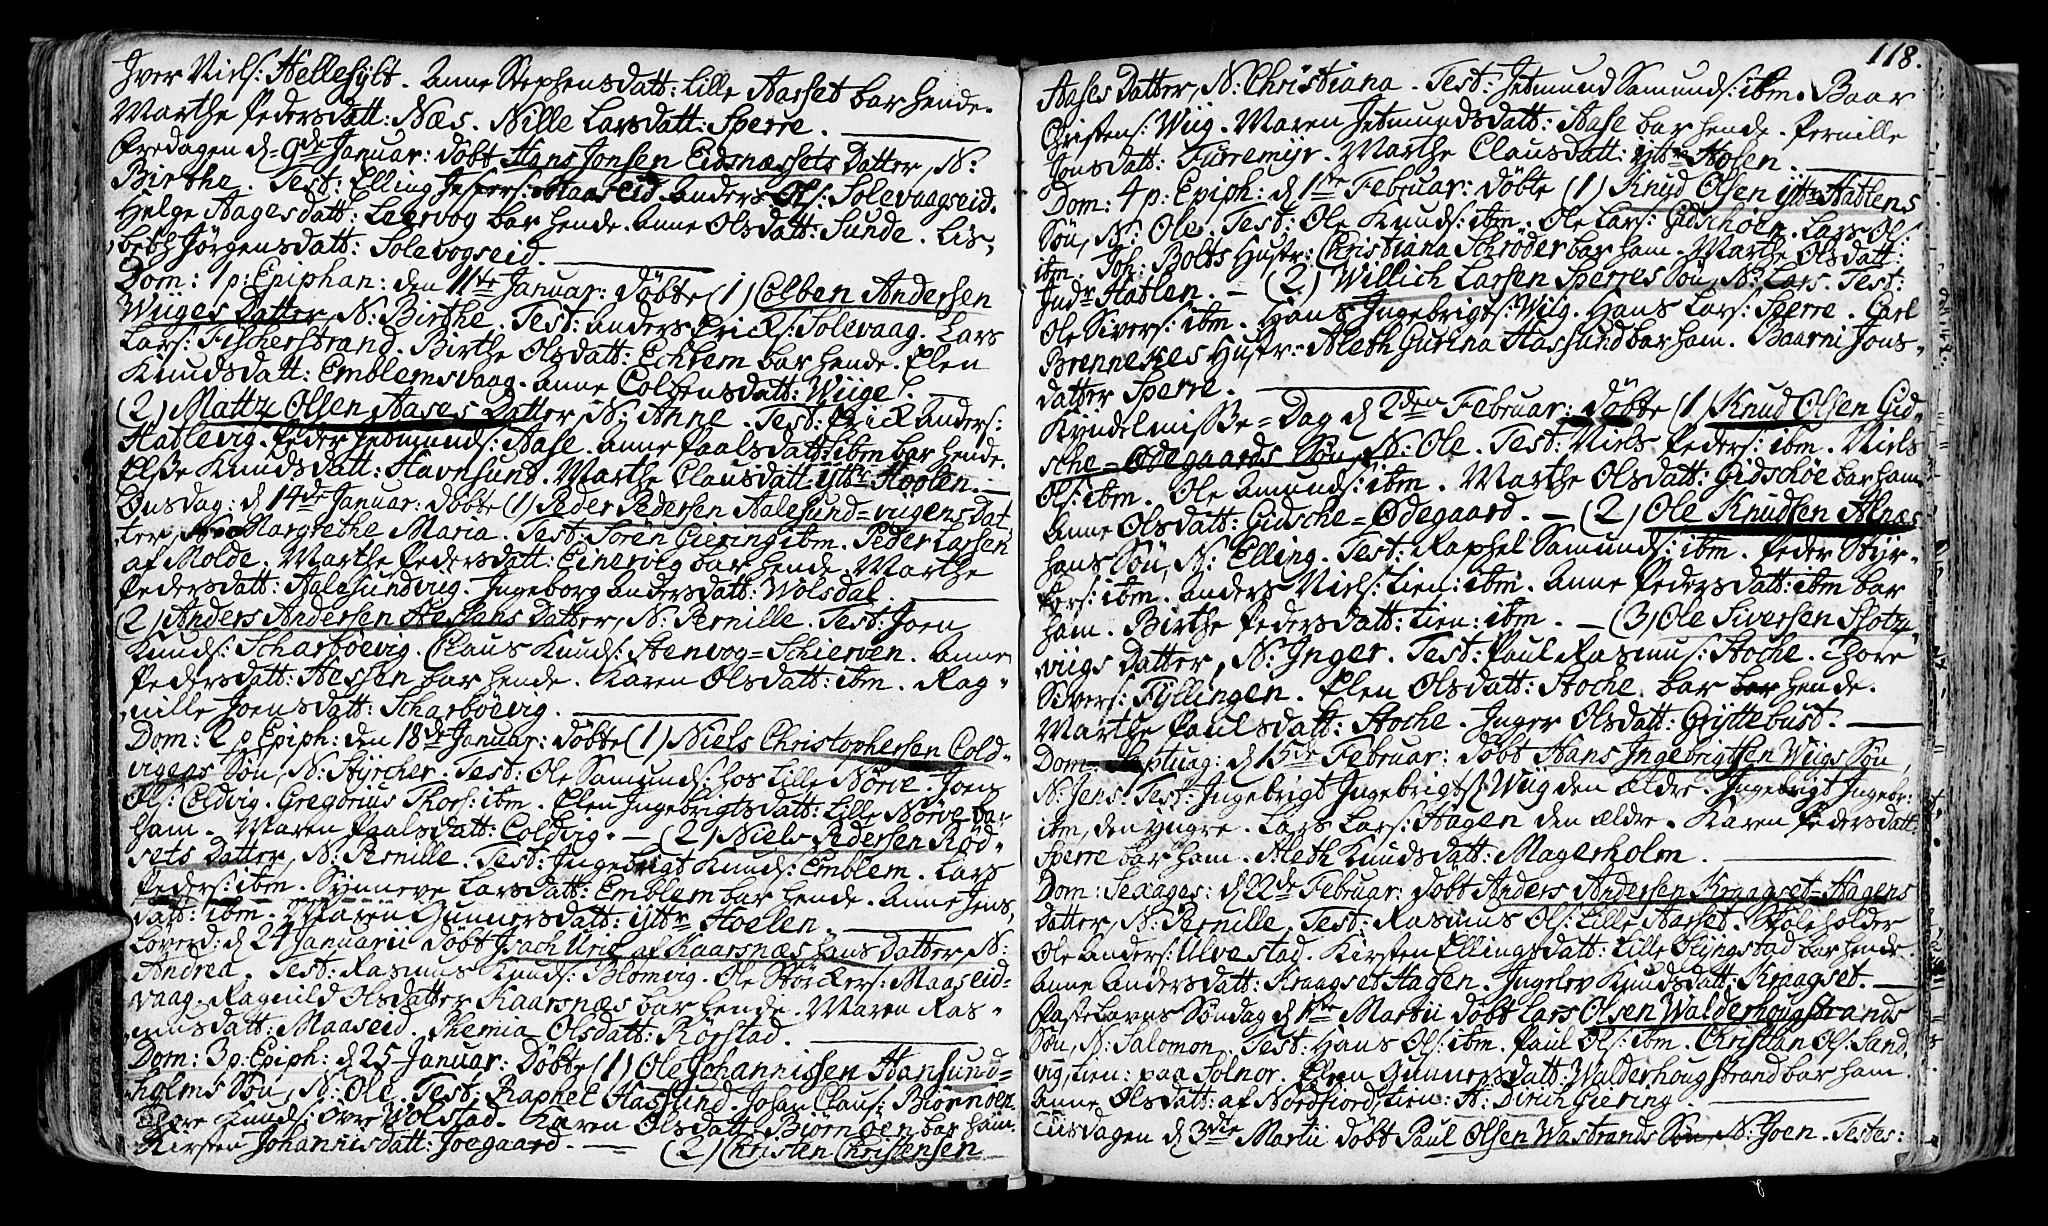 Iver Niels: Hellesylt. Anne Stephensdatt: Lille Aarset bar hende.
Marthe Pedersdatt: Næs. Nille Larsdatt: Sperre.
Fredagen d: 9de Januar: døbt Hans Jonsen Eidsnæssets Datter, N:
Birthe. Test: Elling Jespers: Maaseid. Anders Ols: Solevaagseid.
Helge Aagesdatt: Leervog bar hende. Anne Olsdatt: Sunde. Lis-
beth Jörgensdatt: Solevogseid.
Dom: 1 p: Epiphan: den 11te Januar: døbte (1) Colben Andersen
Wiiges Datter, N: Birthe. Test: Anders Erichs: Solevaag. Lars
Lars: Fischerstrand. Birthe Olsdatt: Echrem bar hende. Elen
Knudsdatt: Emblemsvaag. Anne Colbensdatt: Wiige.
(2) Mattz Olsen Aases Datter, N: Anne. Test: Erick Anders:
Hatlevig. Peder Jetmunds: Aase. Anne Paalsdatt: ibm bar hende.
Elsse Knudsdatt: Havnsund. Marthe Clausdatt: yttr Høolen.
Onsdag: d 14de Januar: døbte (1) Peder Pedersen Aalesund=viigens Dat-
ter, N: Margrethe Maria. Test: Sören Giering ibm. Peder Larsen
af Molde. Marthe Pedersdatt: Einervig bar hende. Marthe
Pedersdatt: Aalesundvig. Ingeborg Andersdatt: Wolsdal.
(2) Anders Andersen Hessans Datter, N: Pernille. Test: Joen
Knuds: Scharbøevig. Claus Knuds: Stenvog=Schierven. Anne
Pedersdatt: Hessen bar hende. Karen Olsdatt: ibm. Rag-
nille Joensdatt: Scharbøevig.
Dom: 2 p Epiph: den 18de Januar: døbte (1) Niels Christophersen Cold-
vigens Søn, N: Styrcher. Test: Ole Samunds: hos Lille Nörve. Joen
Ols: Coldvig. Gregorius Thors: ibm. Elen Ingebrigtsdatt: Lille Nörve bar
ham. Maren Paalsdatt: Coldvig. — (2) Niels Pedersen Röd-
sets Datter, N: Pernille. Test: Ingebrigt Knuds: Emblem. Lars
Peders: ibm. Synneve Larsdatt: Emblem bar hende. Anne Jens-
datt: ibm. Maren Gunnersdatt: yttr Hoelen.
Løverd: d 24 Januarii døbt Isach Urid af Kaarsnæs hans Datter, N:
Andrea. Test: Rasmus Knuds: Blomvig. Ole Störkers: Maaseid-
vaag. Ragnild Olsdatter Kaarsnæs bar hende. Maren Ras-
musdatt: Maaseid. Themia Olsdatt: Rörstad.
Dom: 3 p: Epiph: d 25 Januar: Døbte (1) Ole Johannissen Hansund-
holms Søn, N: Ole. Test: Raphel Hassund. Johan Claus: Biørnøen.
Thore Knuds: Øvre Wolstad. Karen Olsdatt: Biørnøen bar ham.
Kirsten Johannisdatt: Joegaard. — (2) Christen Christensen
118.
Aases Datter, N: Christiana. Test: Jetmund Samunds: ibm. Baar
Christens: Wiig. Maren Jetmundsdatt: Aase bar hende. Pernille
Jonsdatt: Furremyr. Marthe Clausdatt: yttr Hosen.
Dom: 4 p: Epiph: d 1te Februar: døbte (1) Knud Olsen yttr Hatlens
Søn, N: Ole. Test: Ole Knuds: ibm. Ole Lars: Gidschöen. Lars Ols:
ibm. Joh: Bolts Hustr: Christiana Schröder bar ham. Marthe Olsdatt:
Indr Hatlen. — (2) Willich Larsen Sperres Søn, N: Lars. Test:
Ole Sivers: ibm. Hans Ingebrigts: Wiig. Hans Lars: Sperre. Carl
Brenneses Hustr: Aleth Gurina Hassund bar ham. Baarni Jons-
datter Sperre.
Kyndelmisse=Dag d 2den Februar: døbte (1) Knud Olsen Gid-
sche=Ødegaards Søn, N: Ole. Test: Niels Peders: ibm. Niels
Ols: ibm. Ole Amunds: ibm. Marthe Olsdatt: Gidschöe bar ham
Anne Olsdatt: Gidsche=Ødegaard. — (2) Ole Knudsen Alnæs
hans Søn, N: Elling. Test: Raphel Samunds: ibm. Peder Styr-
kers: ibm. Anders Niels: tien: ibm. Anne Pedersdatt: ibm bar
ham. Birthe Pedersdatt: tien: ibm. — (3) Ole Siversen Slotz-
viigs Datter, N: Inger. Test: Paul Rasmus: Stoche. Thore
Sivers: Fyllingen. Elen Olsdatt: Stoche. bar bar hende.
Marthe Paulsdatt: Stoche. Inger Olsdatt: Gryttebust.
Dom: Septuag: d 15de Februar: døbt Hans Ingebrigtsen Wiigs Søn,
N: Jens. Test: Ingebrigt Ingebrigts: Wiig den ældre. Ingebrigt Ingebr:
ibm, den yngre. Lars Lars: Hagen den ældre. Karen Pedersdatt:
Sperre bar ham. Aleth Knudsdatt: Magerholm.
Dom: Sexages: d 22de Februar: døbt Anders Andersen Kraagset=Hagens
Datter, N: Pernille. Test: Rasmus Ols: Lille Aarset. Skoleholder
Ole Anders: Ulvestad. Kirsten Ellingsdatt: Lille Slyngstad bar hende.
Anne Andersdatt: Kraagset Hagen. Ingelev Knudsdatt: Kraagset.
Fastelavns Søndag d 1te Martii døbt Lars Olsen Walderhougstrands
Søn, N: Salomon. Test: Hans Ols: ibm. Paul Ols: ibm. Christian Ols: Sand-
vig, tien: paa Solnor. Elen Gunnersdatt: Walderhougstrand bar ham.
Anne Olsdatt: af Nordfiord, tien: H: Dirich Giering.
Tiisdagen d 3die Martii døbt Paul Olsen Wastrands Søn, N: Joen. Testes: